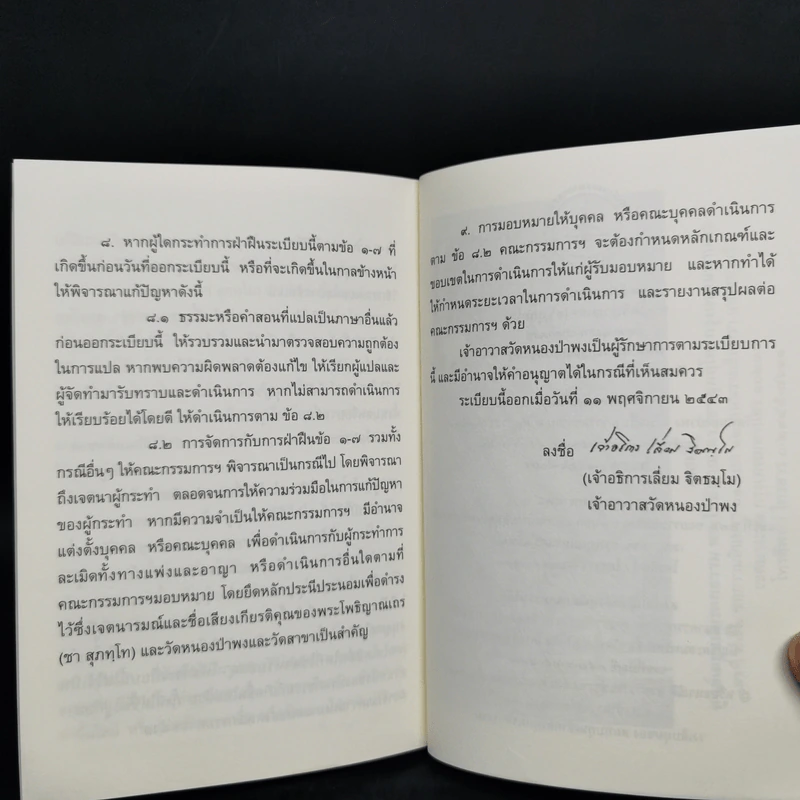 ๘. หากผู้ใดกระทำการฝ่าฝืนระเบียบนี้ตามข้อ ๑-๗ ที่
เกิดขึ้นก่อนวันที่ออกระเบียบนี้ หรือที่จะเกิดขึ้นในกาลข้างหน้า
ให้พิจารณาแก้ปัญหาดังนี้
๘.๑ ธรรมะหรือคำสอนที่แปลเป็นภาษาอื่นแล้ว
ก่อนออกระเบียบนี้ ให้รวบรวมและนำมาตรวจสอบความถูกต้อง
ในการแปล หากพบความผิดพลาดต้องแก้ไข ให้เรียกผู้แปลและ
ผู้จัดทำมารับทราบและดำเนินการ หากไม่สามารถดำเนินการ
ให้เรียบร้อยได้โดยดี ให้ดำเนินการตาม ข้อ ๘.๒
๘.๒ การจัดการกับการฝ่าฝืนข้อ ๑-๗ รวมทั้ง
กรณีอื่นๆ ให้คณะกรรมการฯ พิจารณาเป็นกรณีไป โดยพิจารณา
ถึงเจตนาผู้กระทำ ตลอดจนการให้ความร่วมมือในการแก้ปัญหา
ของผู้กระทำ หากมีความจำเป็นให้คณะกรรมการฯ มีอำนาจ
แต่งตั้งบุคคล หรือคณะบุคคล เพื่อดำเนินการกับผู้กระทำการ
ละเมิดทั้งทางแพ่งและอาญา หรือดำเนินการอื่นใดตามที่
คณะกรรมการฯมอบหมาย โดยยึดหลักประนีประนอมเพื่อดำรง
ไว้ซึ่งเจตนารมณ์และชื่อเสียงเกียรติคุณของพระโพธิญาณเถร
(ชา สุภทฺโท) และวัดหนองป่าพงและวัดสาขาเป็นสำคัญ
๙. การมอบหมายให้บุคคล หรือคณะบุคคลดำเนินการ
ตาม ข้อ ๘.๒ คณะกรรมการฯ จะต้องกำหนดหลักเกณฑ์และ
ขอบเขตในการดำเนินการให้แก่ผู้รับมอบหมาย และหากทำได้
ให้กำหนดระยะเวลาในการดำเนินการ และรายงานสรุปผลต่อ
คณะกรรมการฯ ด้วย
เจ้าอาวาสวัดหนองป่าพงเป็นผู้รักษาการตามระเบียบการ
นี้ และมีอำนาจให้คำอนุญาตได้ในกรณีที่เห็นสมควร
ระเบียบนี้ออกเมื่อวันที่ ๑๑ พฤศจิกายน ๒๕๔๓
ลงชื่อ เจ้าอธิการ เลี่ยม จิตธมฺโม
(เจ้าอธิการเลี่ยม จิตธมฺโม)
เจ้าอาวาสวัดหนองป่าพง